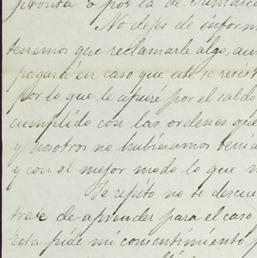 pronta o por la de
No dejes de inform
tenemos que reclamarle algo, aun
pagará en caso que este se resis
por lo que le apuré por el saldo
cumplido con las ordenes que
y nosotros no hubiéramos tenid
y con el mejor modo lo que n
Te repito no te descui
trate de aprender para el caso
Esta pide mi consentimiento p